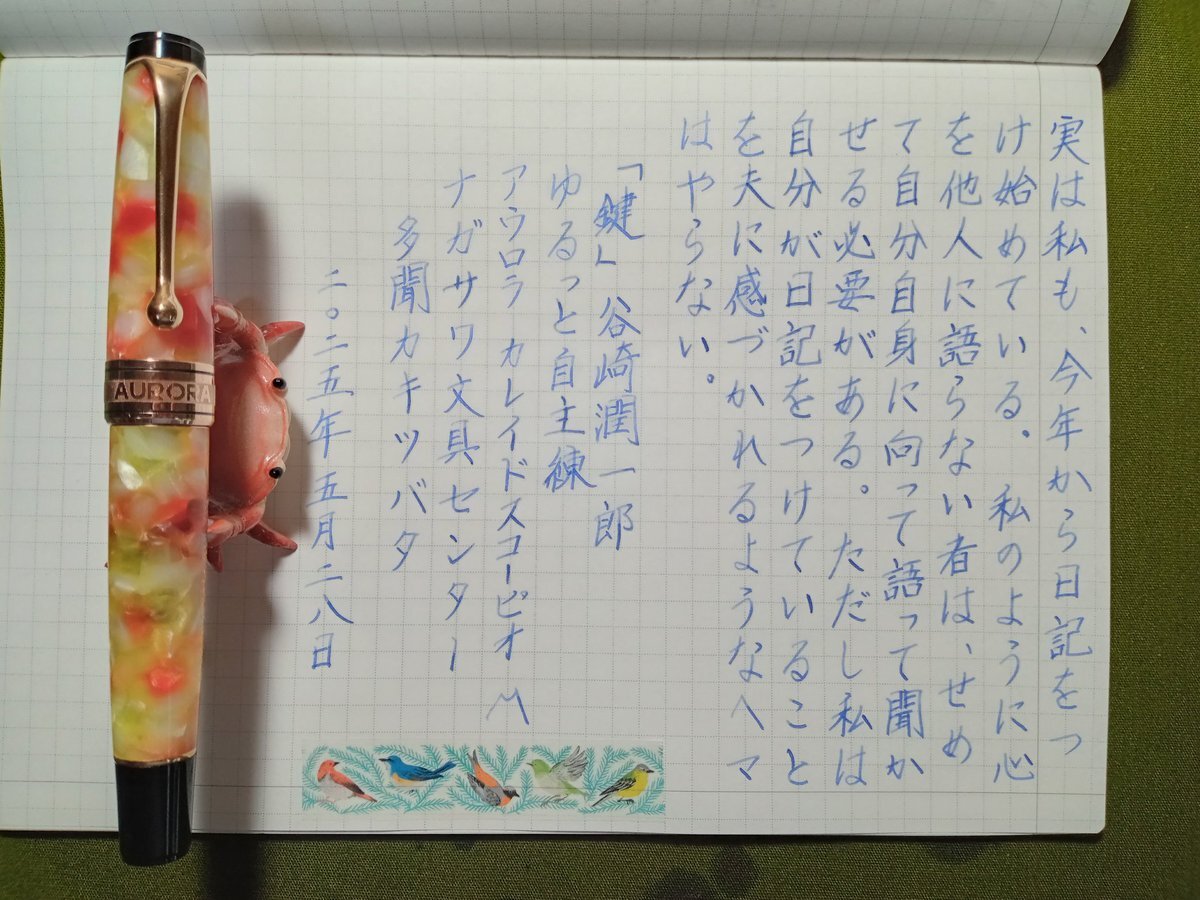 実は私も、今年から日記をつ
け始めている。私のように心
を他人に語らない者は、せめ
て自分自身に向って語って聞か
せる必要がある。ただし私は
自分が日記をつけていること
を夫に感づかれるようなヘマ
はやらない。
「鍵」 谷崎潤一郎
ゆるっと自主練
アウロラ カレイドスコーピオ M
ナガサワ文具センター
多聞カキツバタ
二〇二五年五月二八日
AURORA